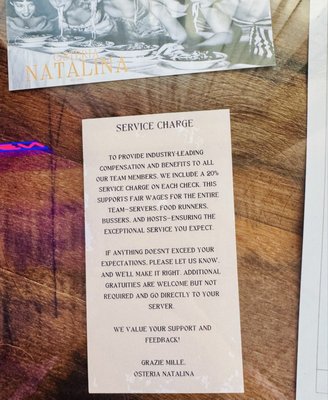 OSTERIA
NATALINA
SERVICE CHARGE
TO PROVIDE INDUSTRY-LEADING
COMPENSATION AND BENEFITS TO ALL
OUR TEAM MEMBERS, WE INCLUDE A 20%
SERVICE CHARGE ON EACH CHECK. THIS
SUPPORTS FAIR WAGES FOR THE ENTIRE
TEAM—SERVERS, FOOD RUNNERS,
BUSSERS, AND HOSTS—ENSURING THE
EXCEPTIONAL SERVICE YOU EXPECT.
IF ANYTHING DOESN'T EXCEED YOUR
EXPECTATIONS, PLEASE LET US KNOW,
AND WE'LL MAKE IT RIGHT. ADDITIONAL
GRATUITIES ARE WELCOME BUT NOT
REQUIRED AND GO DIRECTLY TO YOUR
SERVER.
WE VALUE YOUR SUPPORT AND
FEEDBACK!
GRAZIE MILLE,
OSTERIA NATALINA